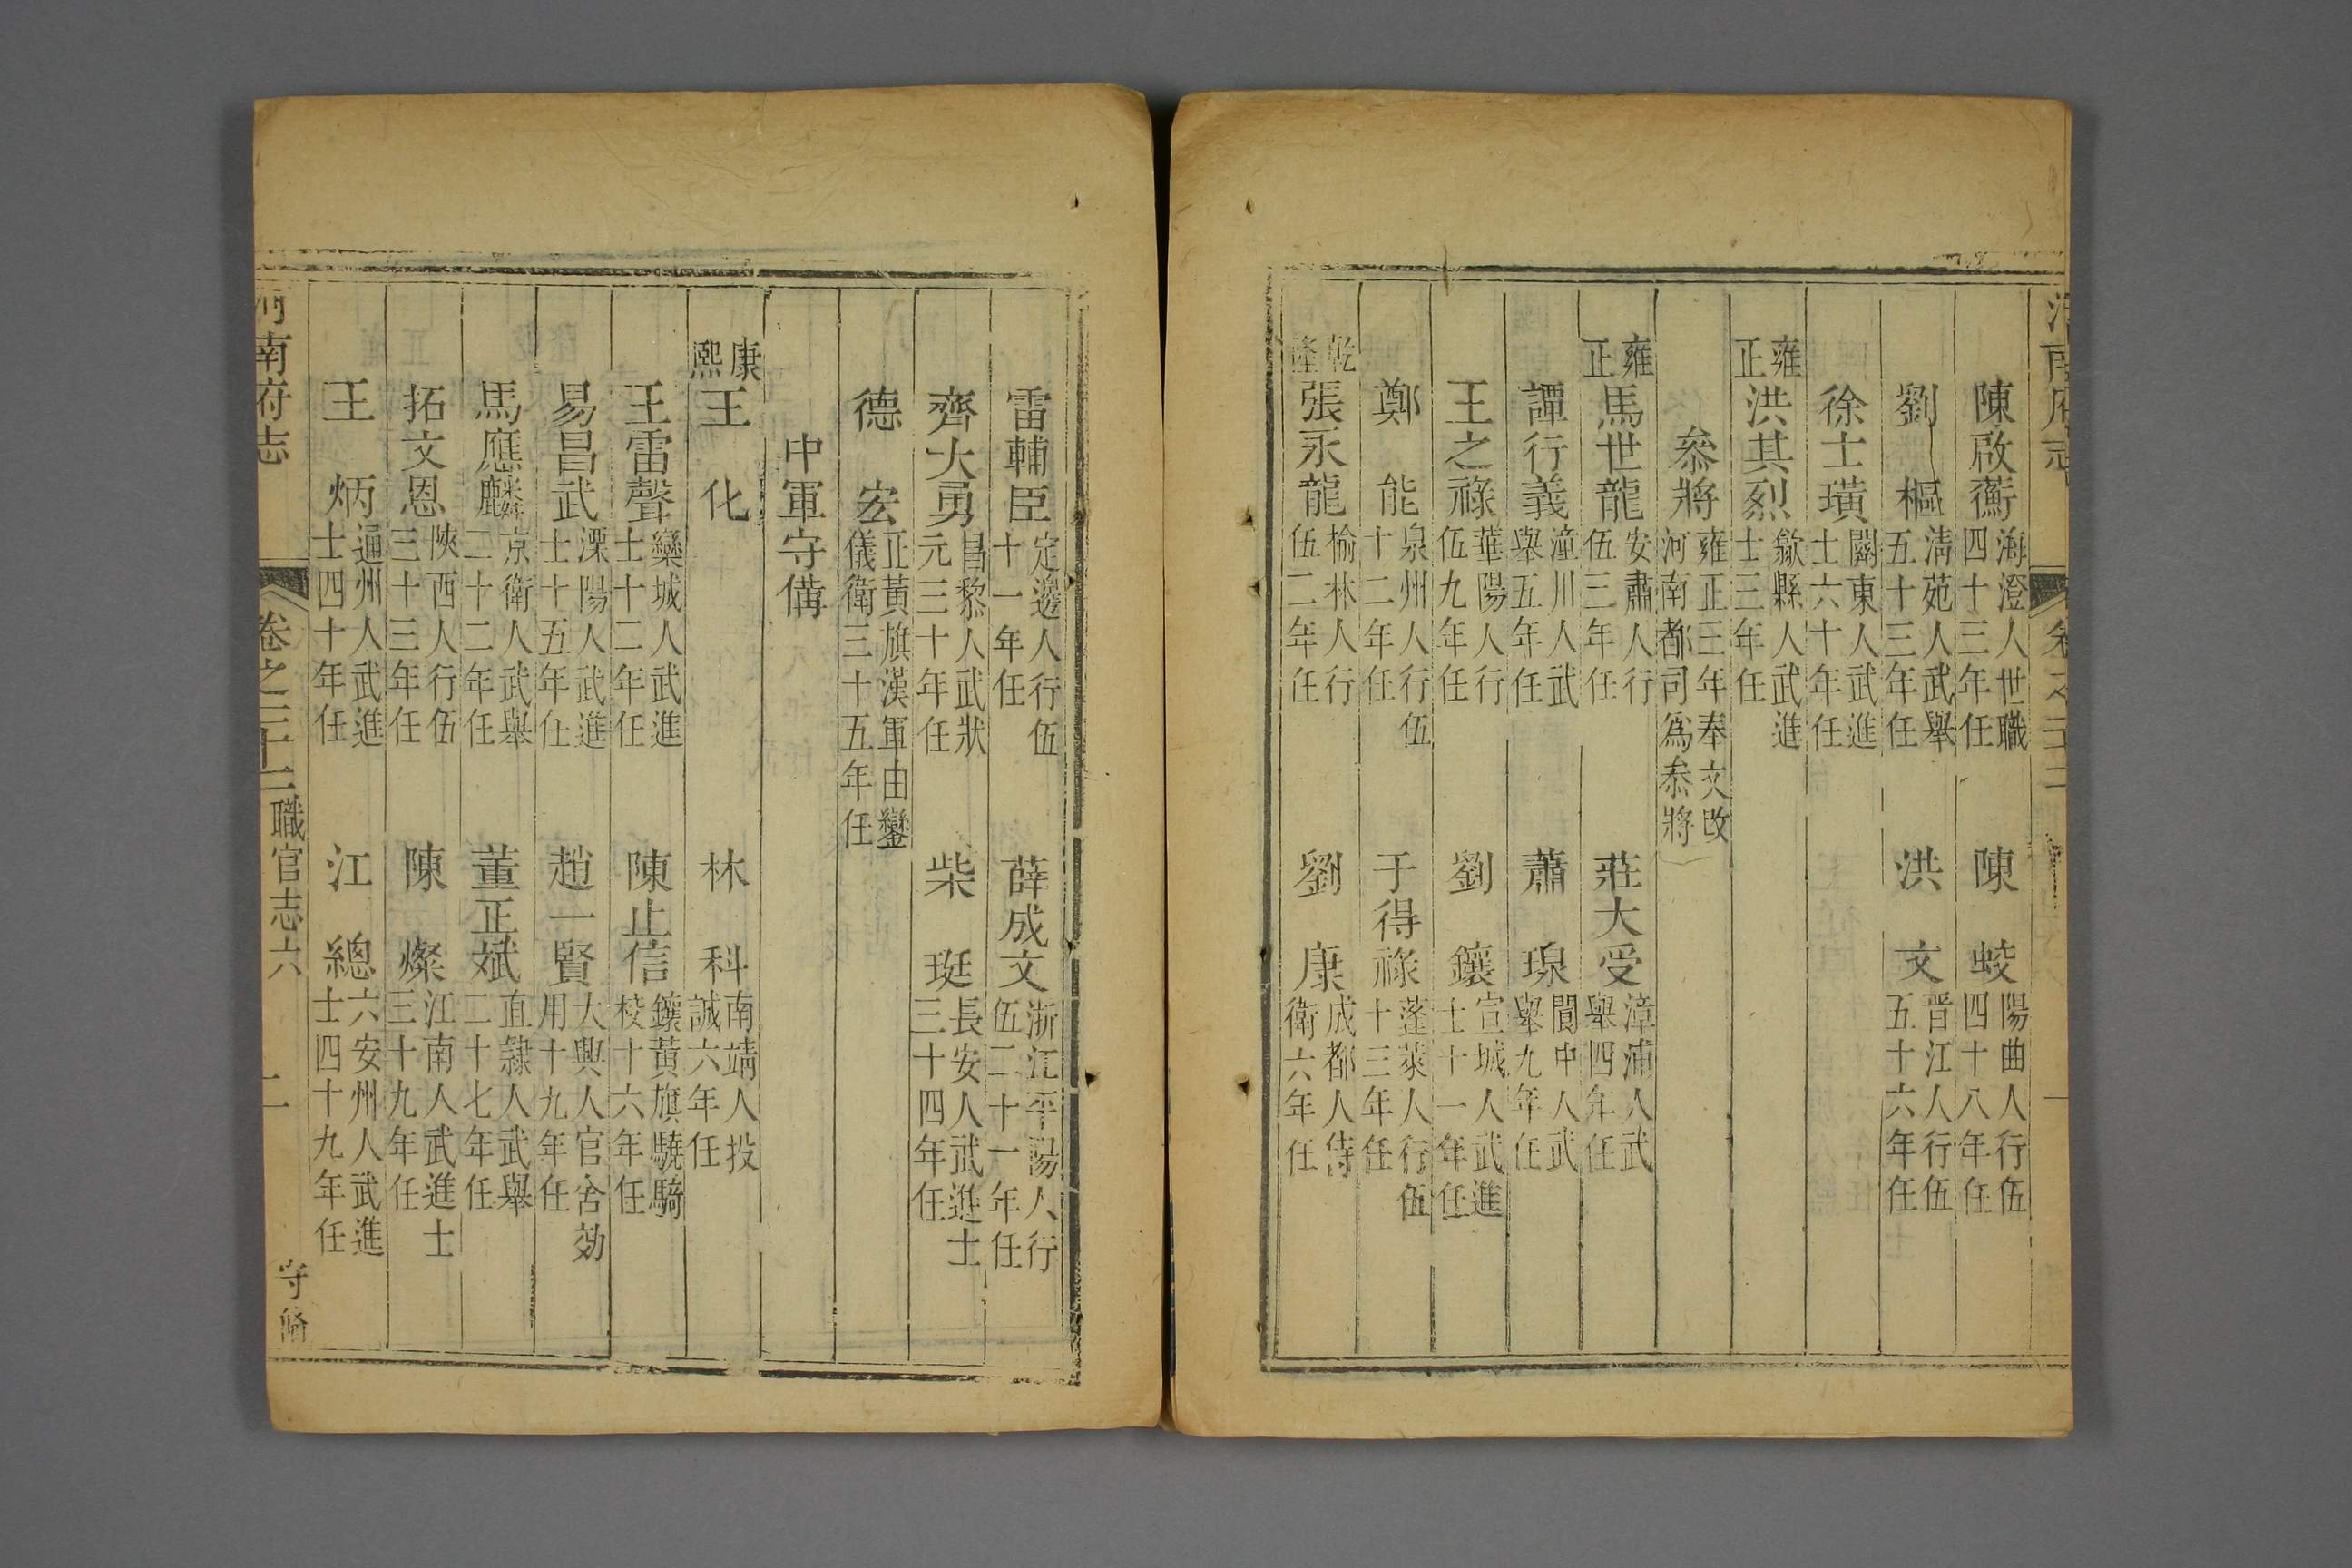 河南府志 卷之三十二
陳啟蘅 海澄人世職四十三年任 陳蛟 陽曲人行伍四十八年任
劉樞 清苑人武舉五十三年任 洪文 晋江人行伍五十六年任
徐士璜 關東人武進士六十年任
雍正 洪其烈 歙縣人武進士三年任
叅將 雍正三年奉文改河南都司為叅將
雍正 馬世龍 安肅人行伍三年任 莊大受 漳浦人武舉四年任
譚行義 潼川人武舉五年任 蕭瑔 閬中人武舉九年任
王之祿 華陽人行伍九年任 劉鑲 宣城人武進士十一年任
鄭能 泉州人行伍十二年任 于得祿 蓬萊人行伍十三年任
乾隆 張永龍 榆林人行伍二年任 劉康 成都人侍衛六年任
雷輔臣 定邊人行伍十一年任 薛成文 浙江平陽人行伍二十一年任
齊大勇 昌黎人武狀元三十年任 柴珽 長安人武進士三十四年任
德宏 正黃旗漢軍由鑾儀衛三十五年任
中軍守備
康熙 王化 林科 南靖人投誠六年任
王雷聲 欒城人武進士十二年任 陳止信 鑲黃旗驍騎校十六年任
易昌武 溧陽人武進士十五年任 趙一賢 大興人官舍効用十九年任
馬應麟 京衛人武舉二十二年任 董正斌 直隸人武舉二十七年任
拓文恩 陝西人行伍三十三年任 陳燦 江南人武進士三十九年任
王炳 通州人武進士四十年任 江總 六安州人武進士四十九年任
河南府志 卷之三十二 職官志六 二 守備